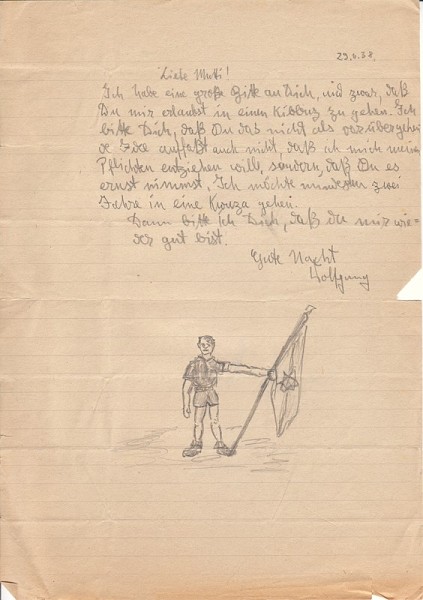 29.V.38.
Liebe Mutti!
Ich habe eine große Bitte an Dich, und zwar, daß
Du mir erlaubst in einen Kibbuz zu gehen. Ich
bitte Dich, daß Du das nicht als vorübergehen
de Idee auffaßt auch nicht, daß ich mich meinen
Pflichten entziehen will, sondern, daß Du es
ernst nimmst. Ich möchte zwei
Jahre in eine Kwuza gehen.
Dann bitte ich Dich, daß du mir wie=
der gut bist.
Gute Nacht
Wolfgang